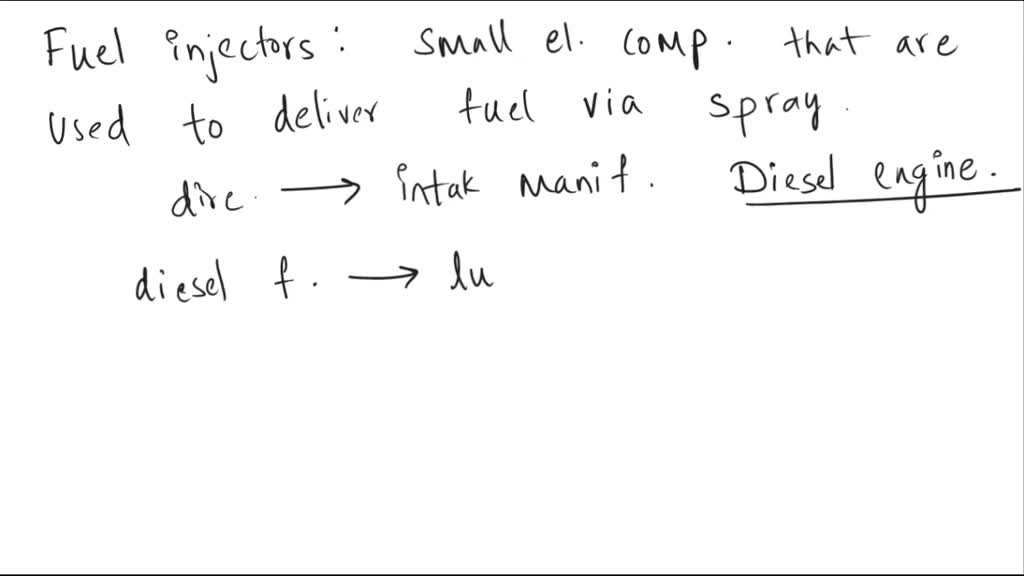 Fuel injectors: small el. comp. that are
used to deliver fuel via spray.
dire. → intak manif. Diesel engine.
diesel f. → lu